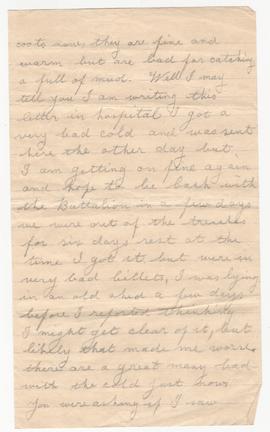 coats now, they are fine and
warm but are bad for catching
a full of mud. Well I may
tell you I am writing this
letter in hospital I got a
very bad cold and was sent
here the other day but
I am getting on fine again
and hope to be back with
the Battalion in a few days
we were out of the trenches
for six days rest at the
time I got it but were in
very bad billets, I was lying
in an old shed a few days
before I reported thinking
I might get clear of it, but
likely that made me worse.
there are a great many bad
with the cold just now
You were asking if I saw